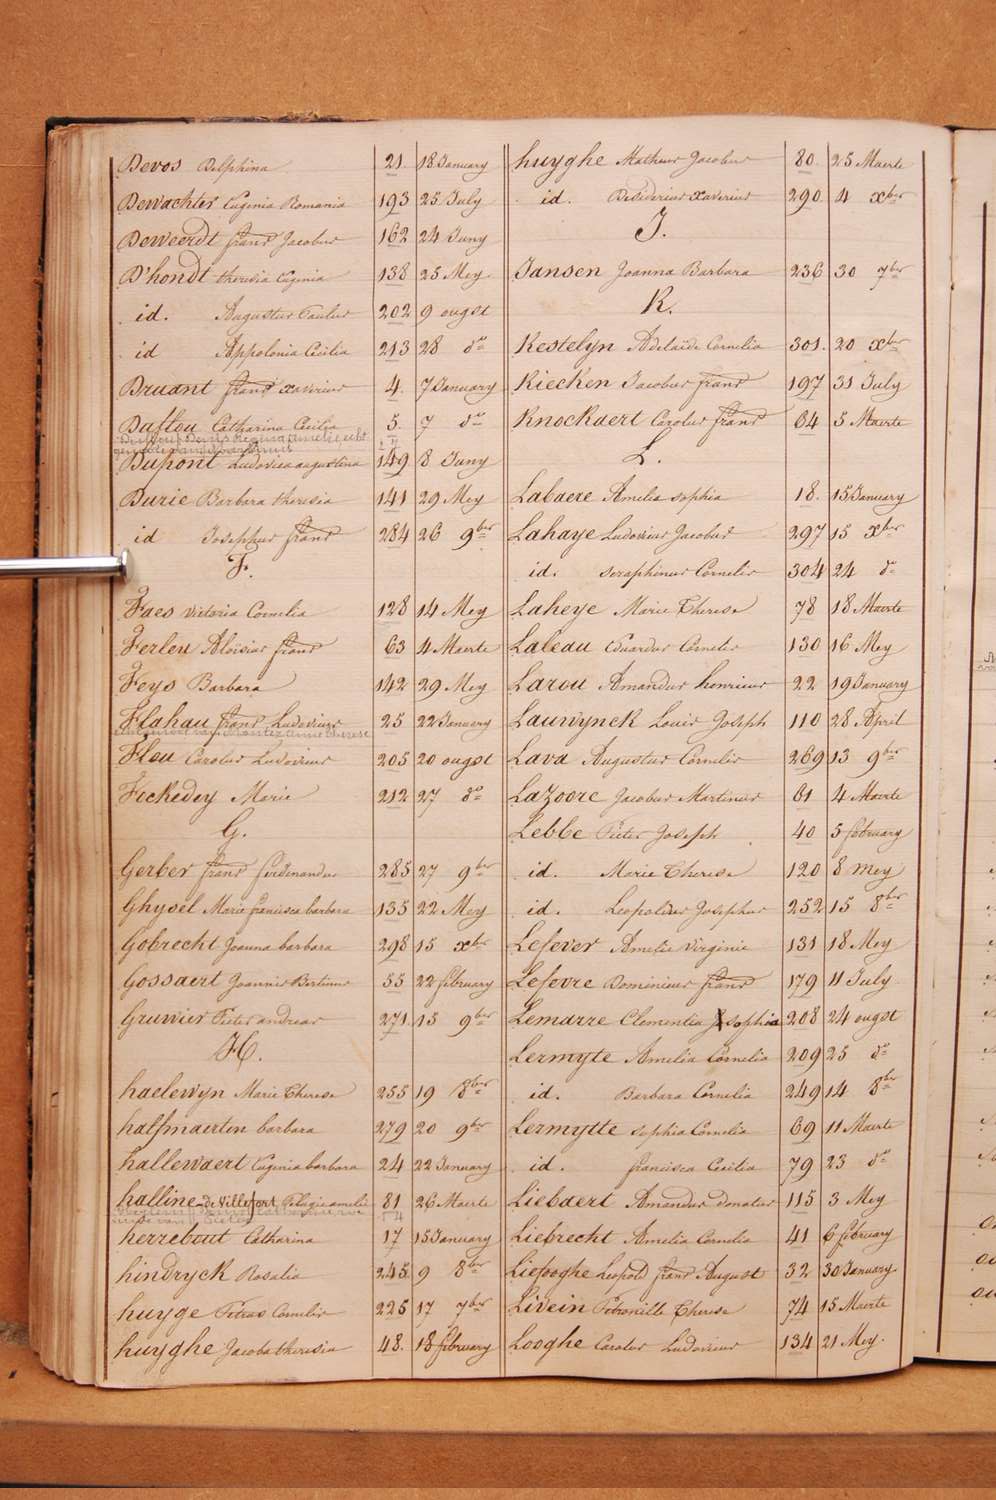 Devos Delphina 21. 18 January
Dewachter Eugenia Romania 193 25 July
Deweerdt frans Jacobus 162 24 Juny
D'hondt theresia Eugenia 138 25 Mey
id. Augustus Paulus 202 9 ougst
id Appolonia Cecilia 213 28 do
Druant frans xaverius 4. 7 January
Daflou Catharina Cecilia 5. 7 do
Dupont Ludovica augustina 149 8 Juny
Durie Barbara theresia 141 29 Mey
id Josephus frans 284 26 9ber
F.
Faes Victoria Cornelia 128 14 Mey
Ferleu Aloisius frans 63 4 Maerte
Feys Barbara 142 29 Mey
Flahau frans Ludovicus 25 22 January
Flou Carolus Ludovicus 205 20 ougst
Feckedey Marie 212 27 do
G.
Gerber frans ferdinandus 285 27 9ber
Ghysel Marie francisca barbara 135 22 Mey
Gobrecht Joanna barbara 298 15 xber
Gossaert Joannes Bertinus 55 22 february
Gruwier Pieter andreas 271. 15 9ber
H.
haelewyn Marie Therese 255 19 8ber
halfmaerten barbara 279 20 9ber
hallewaert Eugenia barbara 24 22 January
halline-de Villefort Pelagie amelie 81 26 Maerte
herrebout Catharina 17 15 January
hindryck Rosalia 245. 9 8ber
huyge Petrus Cornelis 225 17 7ber
huyghe Jacoba theresia 48. 18 february
huyghe Matheus Jacobus 80. 25 Maerte
id. Desiderius xaverius 290 4 xber
J.
Jansen Joanna Barbara 236 30 7ber
K.
Kestelyn Adelaide Cornelia 301. 20 xber
Kiecken Jacobus frans 197 31 July
Knockaert Carolus frans 64 5 Maerte
L.
Labaere Amelia sophia 18. 15 January
Lahaye Ludovicus Jacobus 297 15 xber
id. seraphinus Cornelis 304 24 do
Laheye Marie Therese 78 18 Maerte
Laleau Eduardus Cornelis 130 16 Mey
Larou Amandus henricus 22 19 January
Lauwynck Louis Joseph 110 28 April
Lava Augustus Cornelis 269 13 9ber
Lazoore Jacobus Martinus 61 4 Maerte
Lebbe Pieter Joseph 40 5 february
id. Marie Therese 120 8 mey
id. Leopoldus Josephus 252 15 8ber
Lefever Amelie Virginie 131 18 Mey
Lefevre Dominicus frans 179 11 July
Lemarre Clementia sophia 208 24 ougst
Lermyte Amelia Cornelia 209 25 do
id. Barbara Cornelia 249 14 8ber
Lermytte sophia Cornelia 69 11 Maerte
id. francisca Cecilia 79 23 do
Liebaert Amandus donatus 115 3 Mey
Liebrecht Amelia Cornelia 41 6 february
Liefooghe Leopold frans August 32 30 January
Livein Petronille Therese 74 15 Maerte
Looghe Carolus Ludovicus 134 21 Mey.